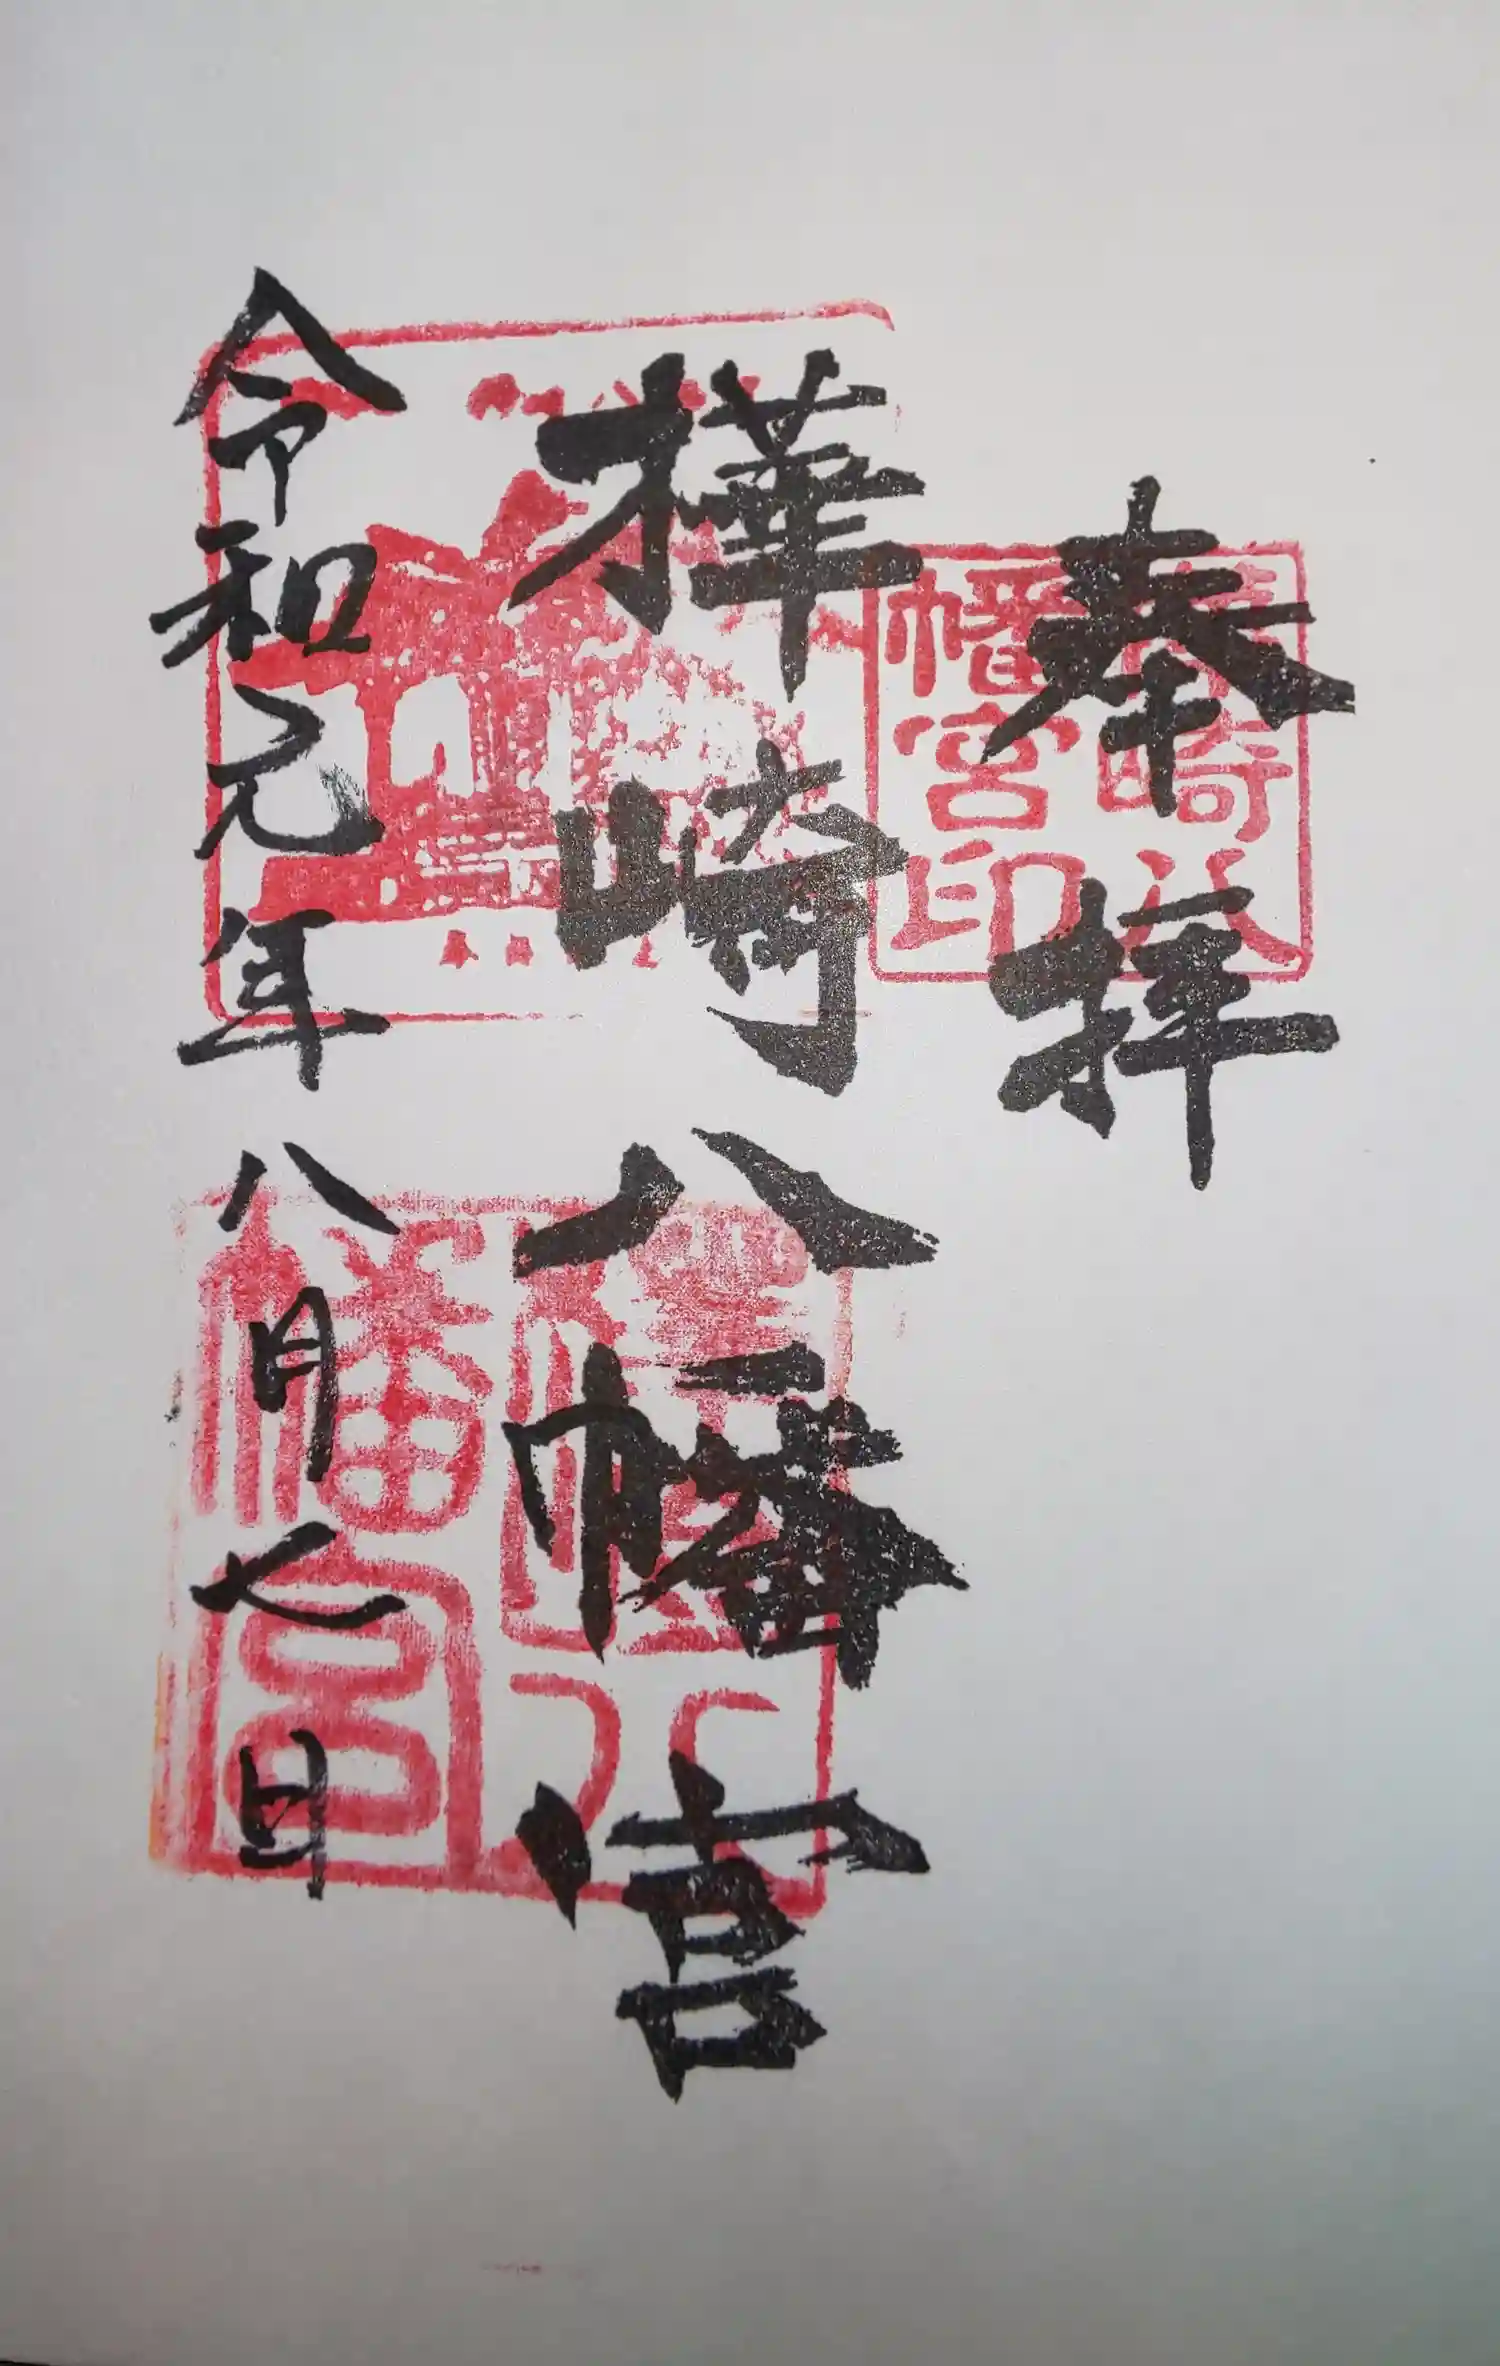 奉拝
樺崎八幡宮
令和元年八月七日
崎八
幡宮印
八
幡宮